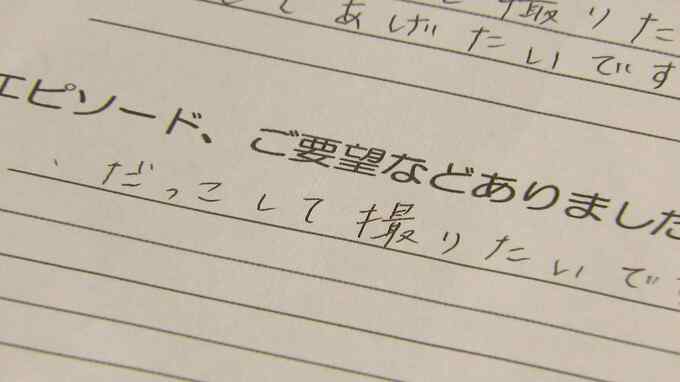 撮りた
してあげたいです
エピソード、ご要望などありました
だっこして撮りたいです